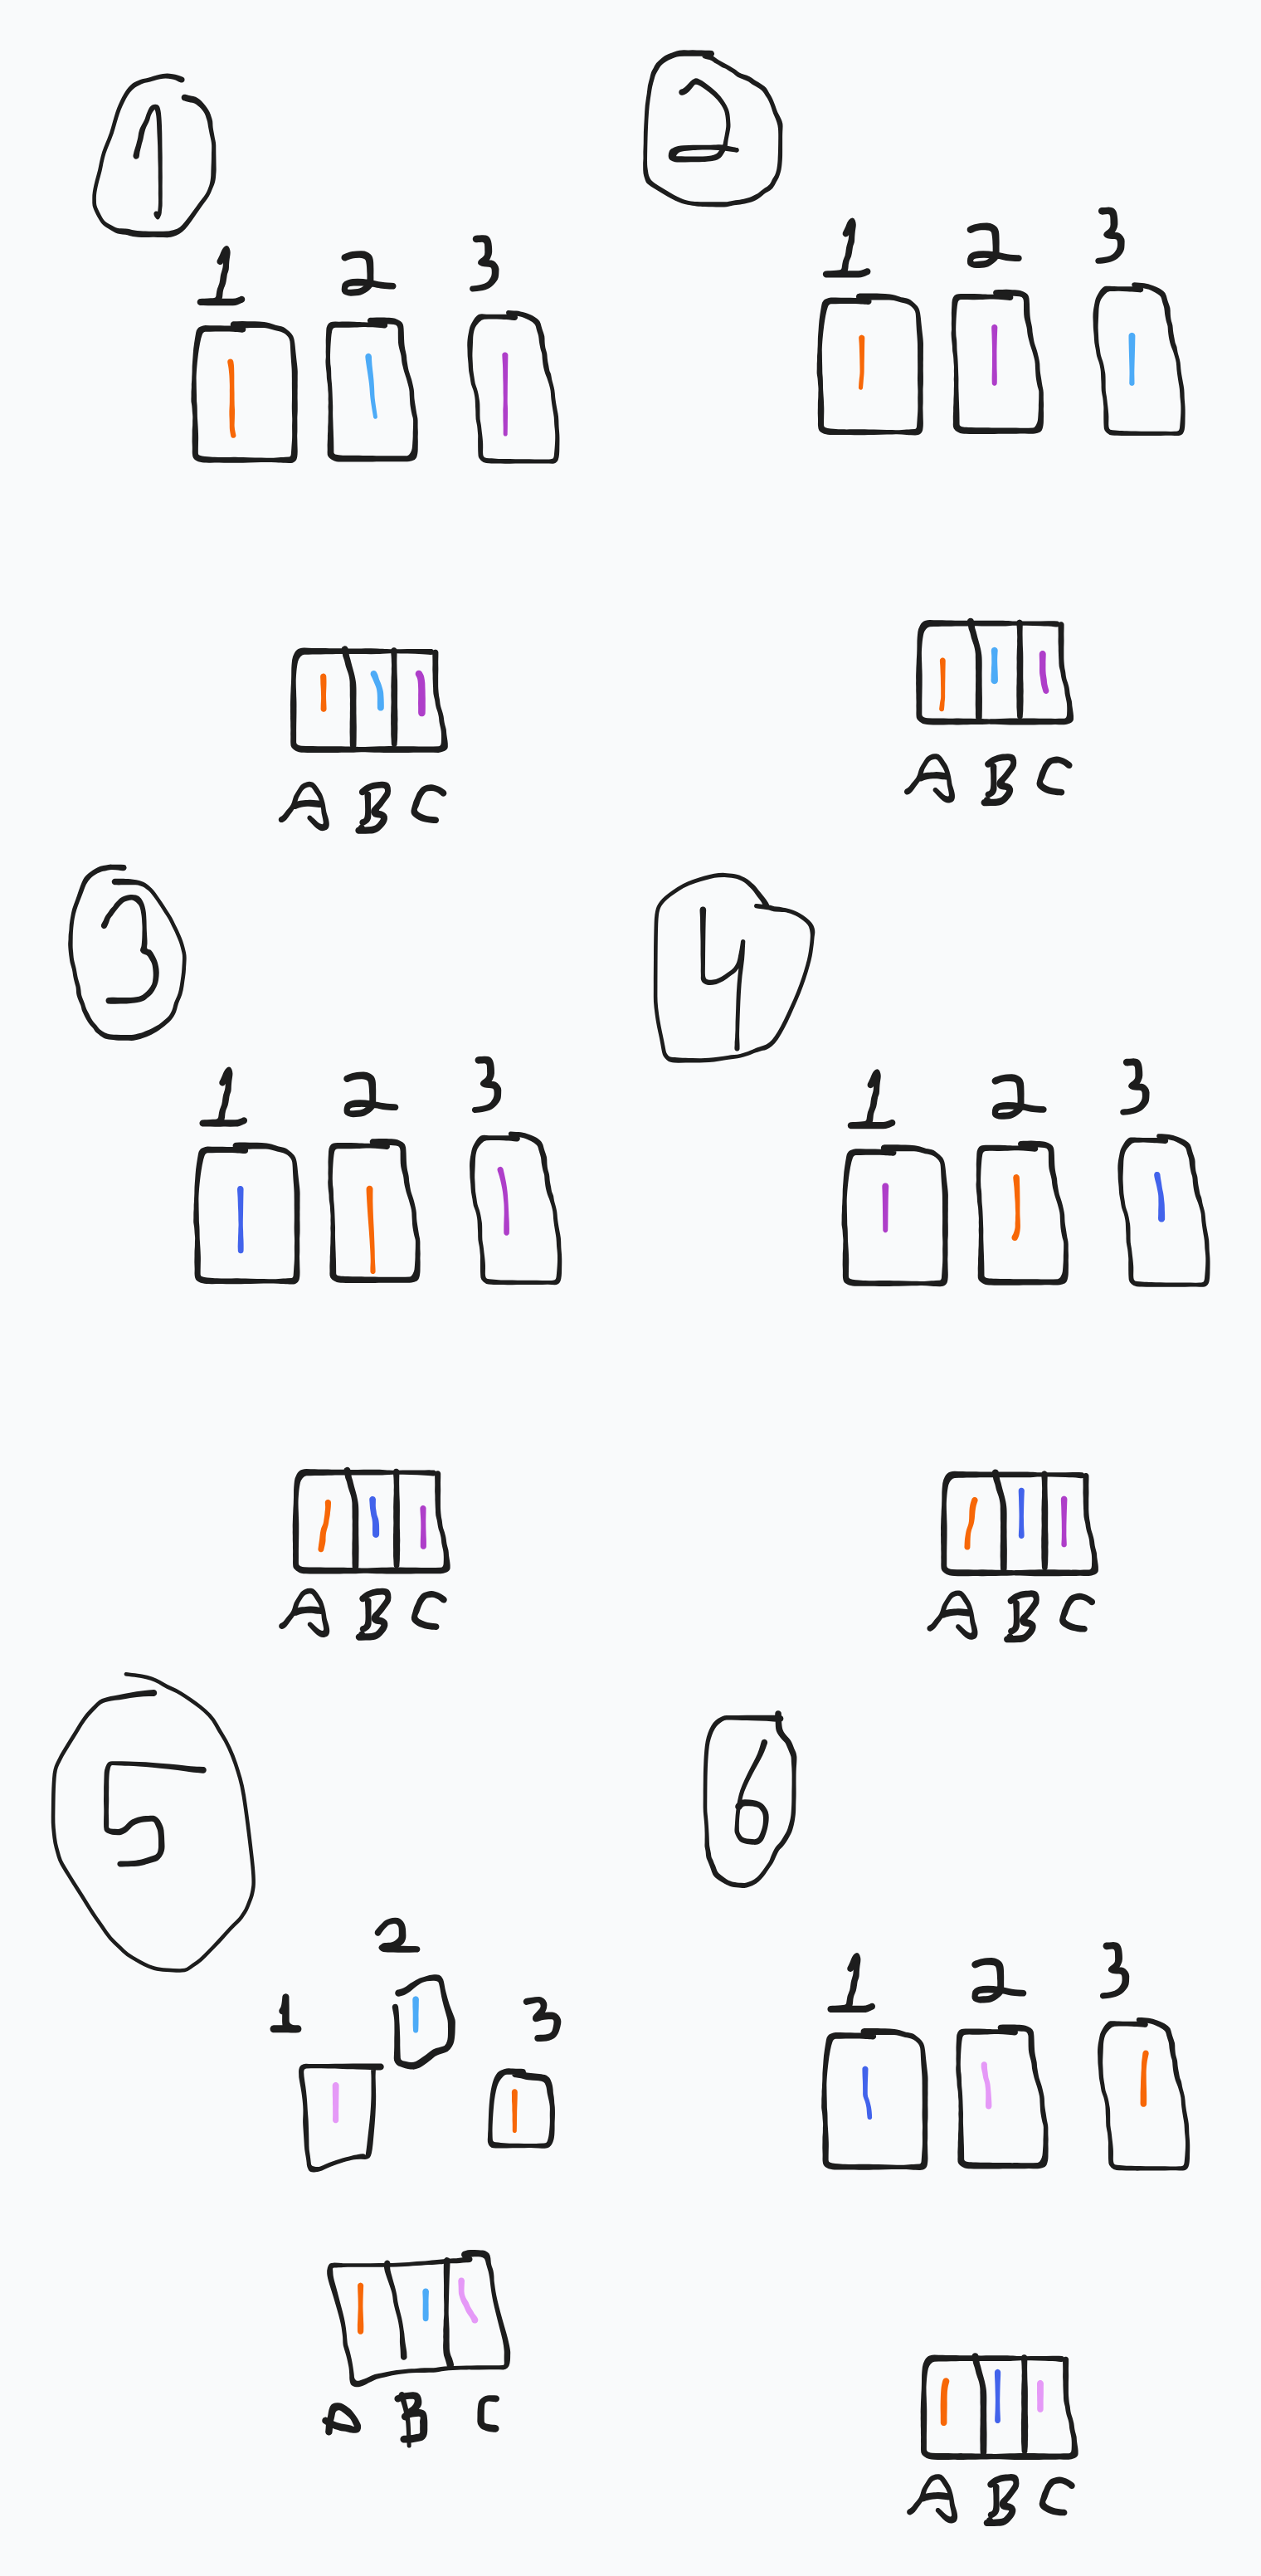 1
1 2 3
A B C
2
1 2 3
A B C
3
1 2 3
A B C
4
1 2 3
A B C
5
1 2 3
A B C
6
1 2 3
A B C